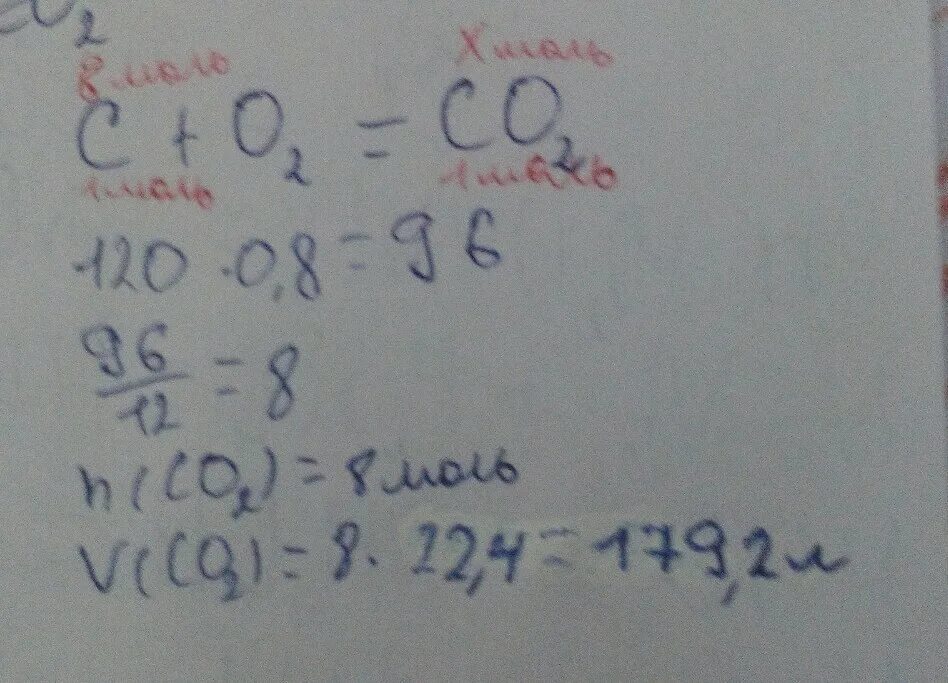 8 моль X моль
C + O₂ = CO₂
1 моль 1 моль
120 · 0,8 = 96
96/12 = 8
n(CO₂) = 8 моль
V(CO₂) = 8 · 22,4 = 179,2 л